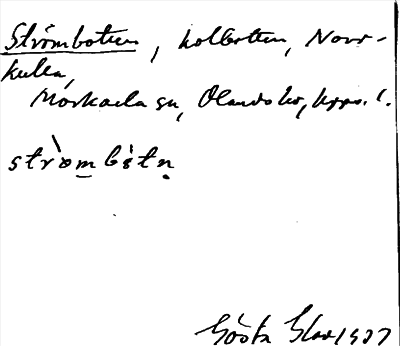 Strömbotten, kolbotten, Norr-
kulla,
Morkarla sn, Olands hd, Upps. l.
strò̀mbötn
Gösta Glas 1927